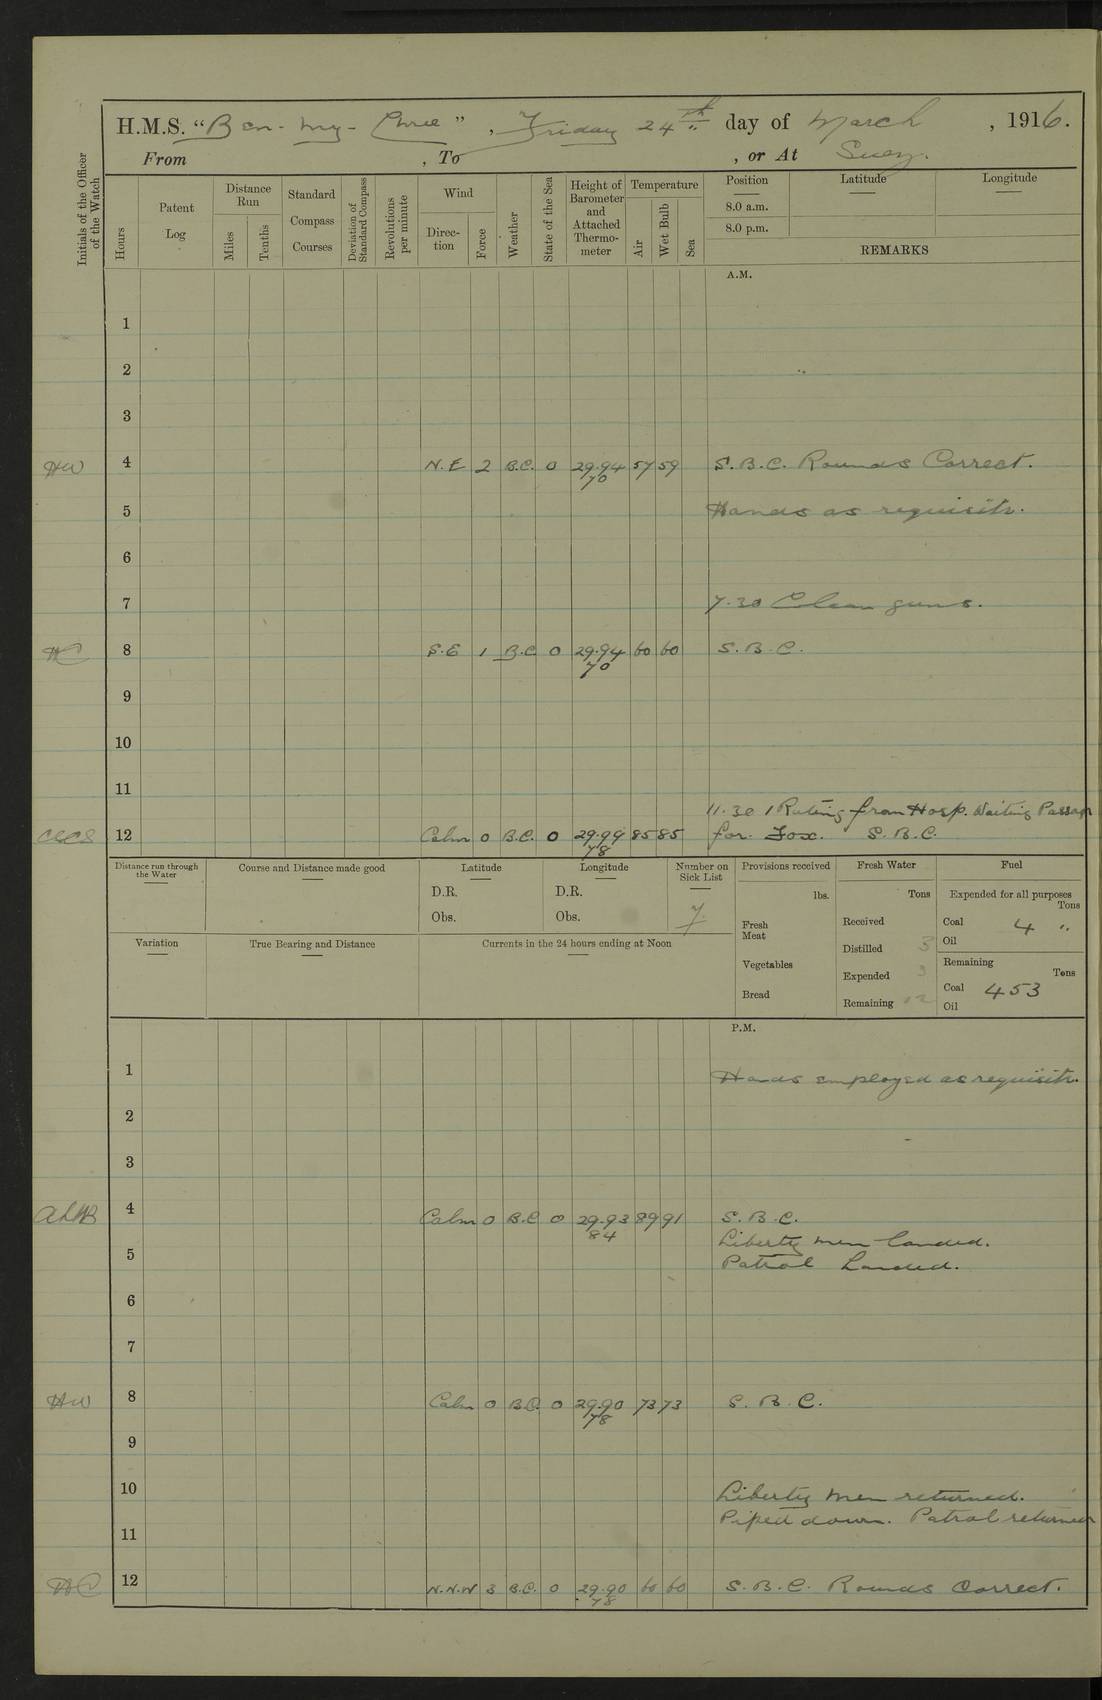 H.M.S. "Ben-my-Chree", Friday 24th day of March, 1916.
From , To , or At Suez.
Initials of the Officer of the Watch
Hours
Patent Log
Distance Run
Miles
Tenths
Standard Compass Courses
Deviation of Standard Compass
Revolutions per minute
Wind
Direction
Force
Weather
State of the Sea
Height of Barometer and Attached Thermometer
Temperature
Air
Wet Bulb
Sea
Position Latitude Longitude
8.0 a.m.
8.0 p.m.
REMARKS
A.M.
1
2
3
HW 4 N.E 2 B.C. 0 29.94 57 59 S.B.C. Rounds Correct.
70
5 Hands as requisite.
6
7 7.30 Clean guns.
HC 8 S.E 1 B.C 0 29.94 60 60 S.B.C.
70
9
10
11
11.30 1 Rating from Hosp. Waiting Passage
12 Calm 0 B.C. 0 29.99 85 85 for Fox. S.B.C.
78
Distance run through the Water
Course and Distance made good
Latitude
D.R.
Obs.
Longitude
D.R.
Obs.
Number on Sick List
7.
Provisions received
lbs.
Fresh Meat
Vegetables
Bread
Fresh Water
Tons
Received
Distilled 3
Expended 3
Remaining 12
Fuel
Expended for all purposes
Tons
Coal 4 "
Oil
Remaining
Tons
Coal 453
Oil
Variation
True Bearing and Distance
Currents in the 24 hours ending at Noon
P.M.
1 Hands employed as requisite.
2
3
4 Calm 0 B.C 0 29.93 89 91 S.B.C.
84
Liberty men landed.
5 Patrol Landed.
6
7
HW 8 Calm 0 B.C. 0 29.90 73 73 S.B.C.
78
9
10 Liberty men returned.
Piped down. Patrol returned
11
HC 12 N.N.W 3 B.C. 0 29.90 60 60 S.B.C. Rounds Correct.
78